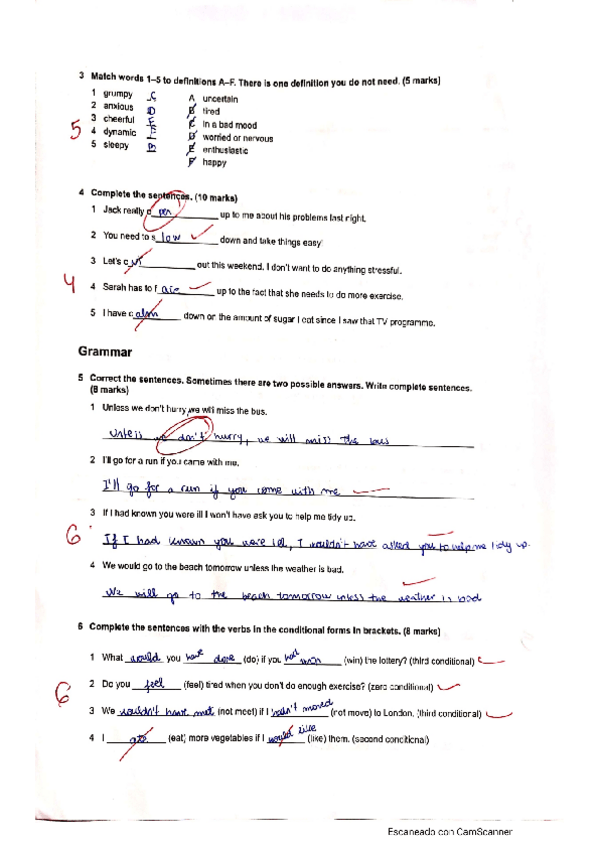 3 Match words 1–5 to definitions A–F. There is one definition you do not need. (5 marks)
1 grumpy C A uncertain
2 anxious D B tired
3 cheerful F C in a bad mood
5 4 dynamic E D worried or nervous
5 sleepy B E enthusiastic
F happy
4 Complete the sentences. (10 marks)
1 Jack really o pen up to me about his problems last night.
2 You need to s low down and take things easy!
3 Let's c out this weekend. I don't want to do anything stressful.
4 4 Sarah has to f ace up to the fact that she needs to do more exercise.
5 I have c alm down on the amount of sugar I eat since I saw that TV programme.
Grammar
5 Correct the sentences. Sometimes there are two possible answers. Write complete sentences.
(8 marks)
1 Unless we don't hurry we will miss the bus.
Unless we don't hurry, we will miss the bus
2 I'll go for a run if you came with me.
I'll go for a run if you come with me
3 If I had known you were ill I won't have ask you to help me tidy up.
6 If I had known you were ill, I wouldn't have asked you to help me tidy up.
4 We would go to the beach tomorrow unless the weather is bad.
We will go to the beach tomorrow unless the weather is bad
6 Complete the sentences with the verbs in the conditional forms in brackets. (8 marks)
1 What would you have done (do) if you had won (win) the lottery? (third conditional)
6 2 Do you feel (feel) tired when you don't do enough exercise? (zero conditional)
3 We wouldn't have met (not meet) if I hadn't moved (not move) to London. (third conditional)
4 I ate (eat) more vegetables if I would like (like) them. (second conditional)
Escaneado con CamScanner